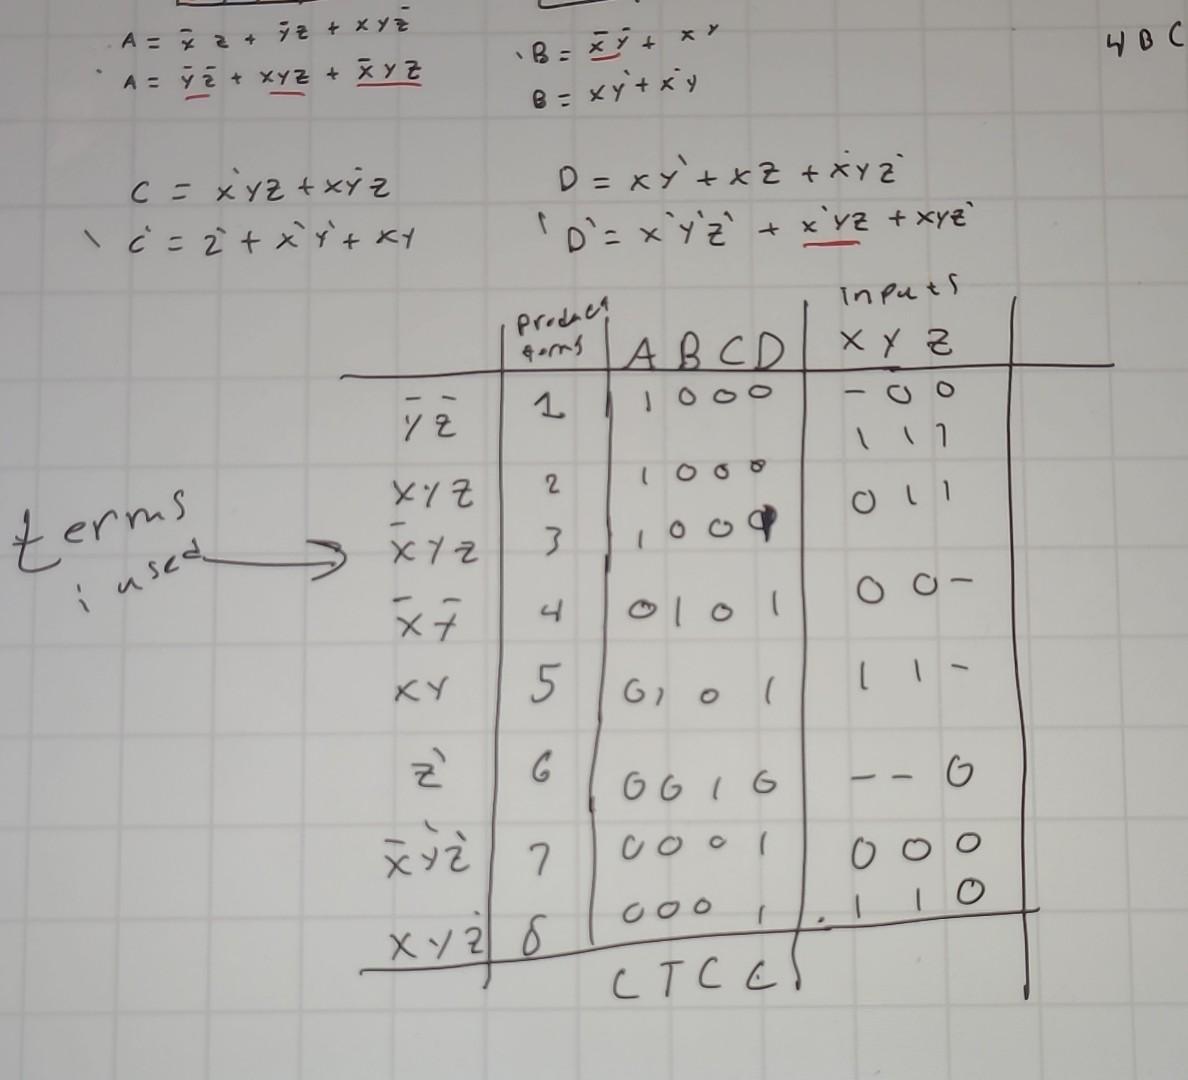 A = x̄ z + ȳz + xyz̄
A = ȳz̄ + xyz + x̄yz
B = x̄ȳ + xy
B = xy' + x'y
4 B C
C = x'yz + xy'z
C' = z' + x'y' + xy
D = xy' + xz + x'yz'
D' = x'y'z' + x'yz + xyz'
inputs
product terms A B C D X Y Z
ȳz̄ 1 1 0 0 0 - 0 0
xyz 2 1 0 0 0 1 1 1
x̄yz 3 1 0 0 1 0 1 1
x̄ȳ 4 0 1 0 1 0 0 -
xy 5 0 1 0 1 1 1 -
z' 6 0 0 1 0 - - 0
x̄y'z' 7 0 0 0 1 0 0 0
xyz' 8 0 0 0 1 1 1 0
C T C C
terms
i used